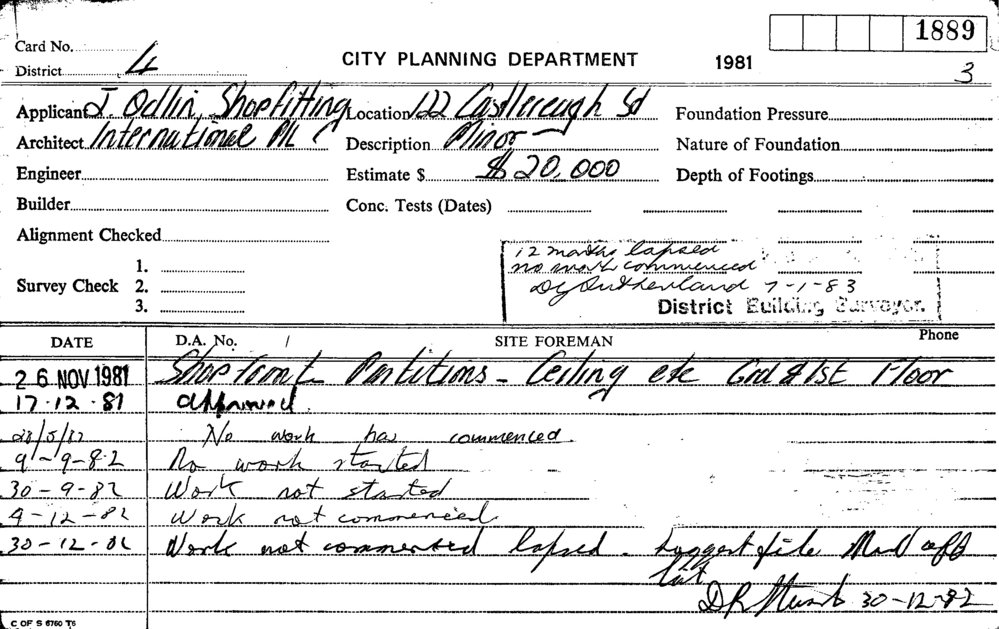 1889
Card No.
CITY PLANNING DEPARTMENT 1981
District 4
3
Applicant J. Odlin Shopfitting Location 122 Castlereagh St Foundation Pressure
Architect International P/L Description Minor Nature of Foundation
Engineer Estimate $ $20,000 Depth of Footings
Builder Conc. Tests (Dates)
Alignment Checked
12 months lapsed
1.
no work commenced
Survey Check 2.
D Sutherland 7-1-83
3.
District Building Surveyor.
DATE D.A. No. / SITE FOREMAN Phone
26 NOV 1981 Shopfront Partitions - Ceiling etc Grd & 1st Floor
17.12.81 Approved.
28/5/82 No work has commenced.
9-9-82 No work started
30-9-82 Work not started
9-12-82 Work not commenced
30-12-82 Work not commenced lapsed - suggest file
30-12-82
C OF S 6760 T6